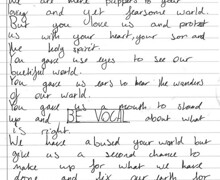 We are mere puppets to your
and yet fearsome world.
But you love us and protect
us with your heart, your son and
the holy spirit.
You gave use eyes to see our
world.
You gave us ears to hear the wonders
of our world.
You gave us a mouth to stand
up and BE VOCAL about what
is right.
We have abused your world but
give us a second chance to
make up for what we have
done and fix our earth for